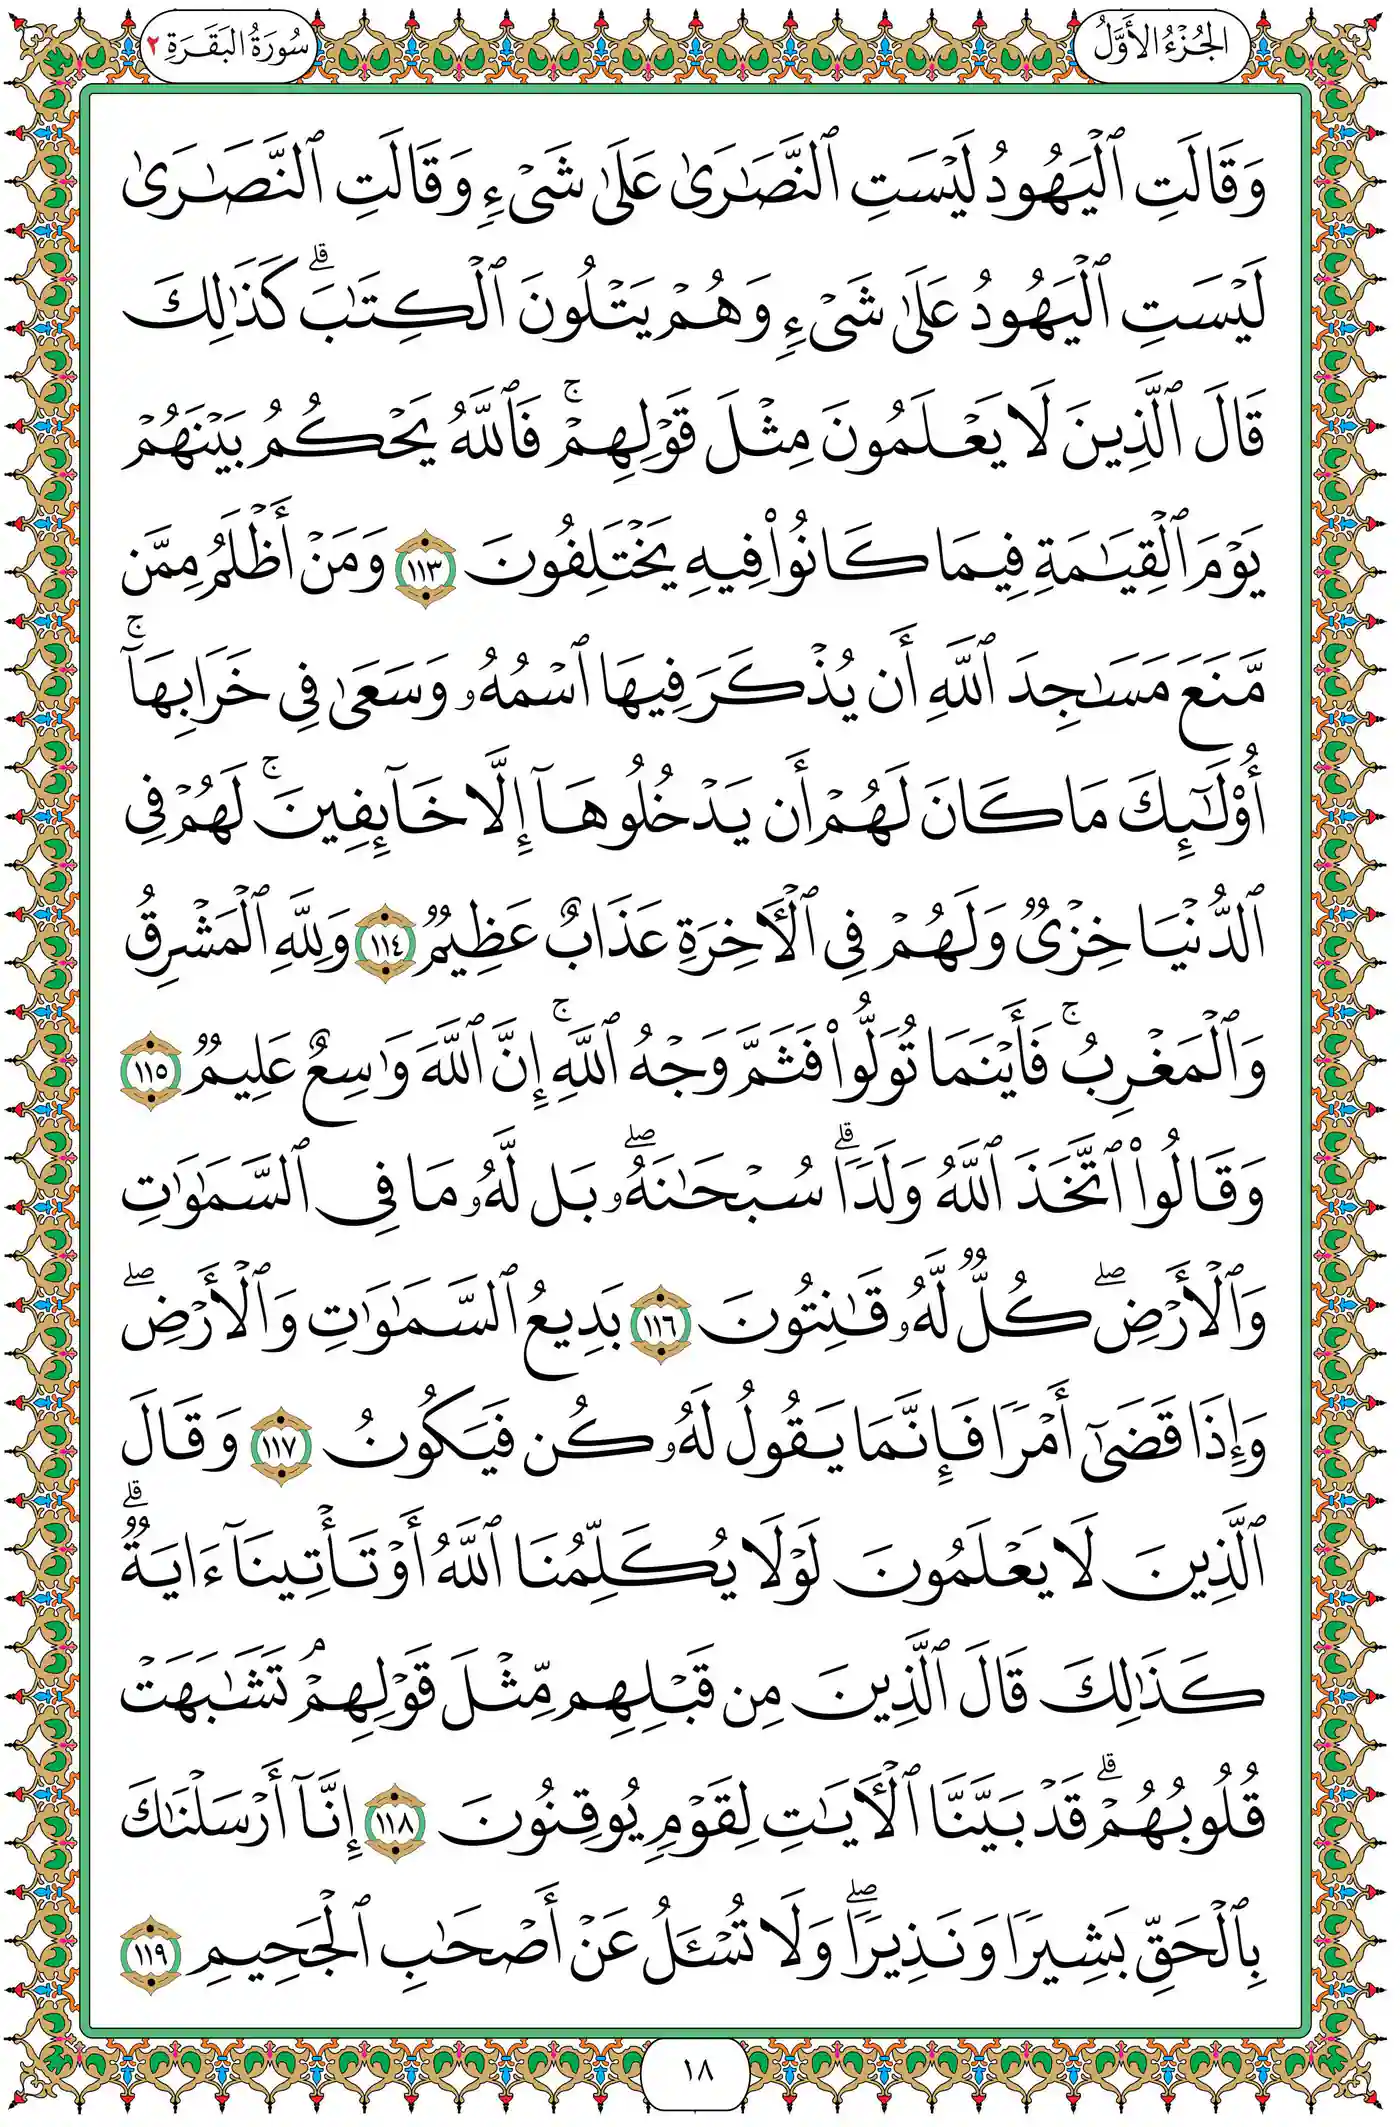 الجُزْءُ الأَوَّلُ
سُورَةُ البَقَرَةِ ٢
وَقَالَتِ ٱلْيَهُودُ لَيْسَتِ ٱلنَّصَـٰرَىٰ عَلَىٰ شَىْءٍ وَقَالَتِ ٱلنَّصَـٰرَىٰ
لَيْسَتِ ٱلْيَهُودُ عَلَىٰ شَىْءٍ وَهُمْ يَتْلُونَ ٱلْكِتَـٰبَ ۗ كَذَٰلِكَ
قَالَ ٱلَّذِينَ لَا يَعْلَمُونَ مِثْلَ قَوْلِهِمْ ۚ فَٱللَّهُ يَحْكُمُ بَيْنَهُمْ
يَوْمَ ٱلْقِيَـٰمَةِ فِيمَا كَانُوا۟ فِيهِ يَخْتَلِفُونَ ١١٣ وَمَنْ أَظْلَمُ مِمَّن
مَّنَعَ مَسَـٰجِدَ ٱللَّهِ أَن يُذْكَرَ فِيهَا ٱسْمُهُۥ وَسَعَىٰ فِى خَرَابِهَآ ۚ
أُو۟لَـٰٓئِكَ مَا كَانَ لَهُمْ أَن يَدْخُلُوهَآ إِلَّا خَآئِفِينَ ۚ لَهُمْ فِى
ٱلدُّنْيَا خِزْىٌ وَلَهُمْ فِى ٱلْـَٔاخِرَةِ عَذَابٌ عَظِيمٌ ١١٤ وَلِلَّهِ ٱلْمَشْرِقُ
وَٱلْمَغْرِبُ ۚ فَأَيْنَمَا تُوَلُّوا۟ فَثَمَّ وَجْهُ ٱللَّهِ ۚ إِنَّ ٱللَّهَ وَٰسِعٌ عَلِيمٌ ١١٥
وَقَالُوا۟ ٱتَّخَذَ ٱللَّهُ وَلَدًا ۗ سُبْحَـٰنَهُۥ ۖ بَل لَّهُۥ مَا فِى ٱلسَّمَـٰوَٰتِ
وَٱلْأَرْضِ ۖ كُلٌّ لَّهُۥ قَـٰنِتُونَ ١١٦ بَدِيعُ ٱلسَّمَـٰوَٰتِ وَٱلْأَرْضِ ۖ
وَإِذَا قَضَىٰٓ أَمْرًا فَإِنَّمَا يَقُولُ لَهُۥ كُن فَيَكُونُ ١١٧ وَقَالَ
ٱلَّذِينَ لَا يَعْلَمُونَ لَوْلَا يُكَلِّمُنَا ٱللَّهُ أَوْ تَأْتِينَآ ءَايَةٌ ۗ
كَذَٰلِكَ قَالَ ٱلَّذِينَ مِن قَبْلِهِم مِّثْلَ قَوْلِهِمْ ۘ تَشَـٰبَهَتْ
قُلُوبُهُمْ ۗ قَدْ بَيَّنَّا ٱلْـَٔايَـٰتِ لِقَوْمٍ يُوقِنُونَ ١١٨ إِنَّآ أَرْسَلْنَـٰكَ
بِٱلْحَقِّ بَشِيرًا وَنَذِيرًا ۖ وَلَا تُسْـَٔلُ عَنْ أَصْحَـٰبِ ٱلْجَحِيمِ ١١٩
١٨